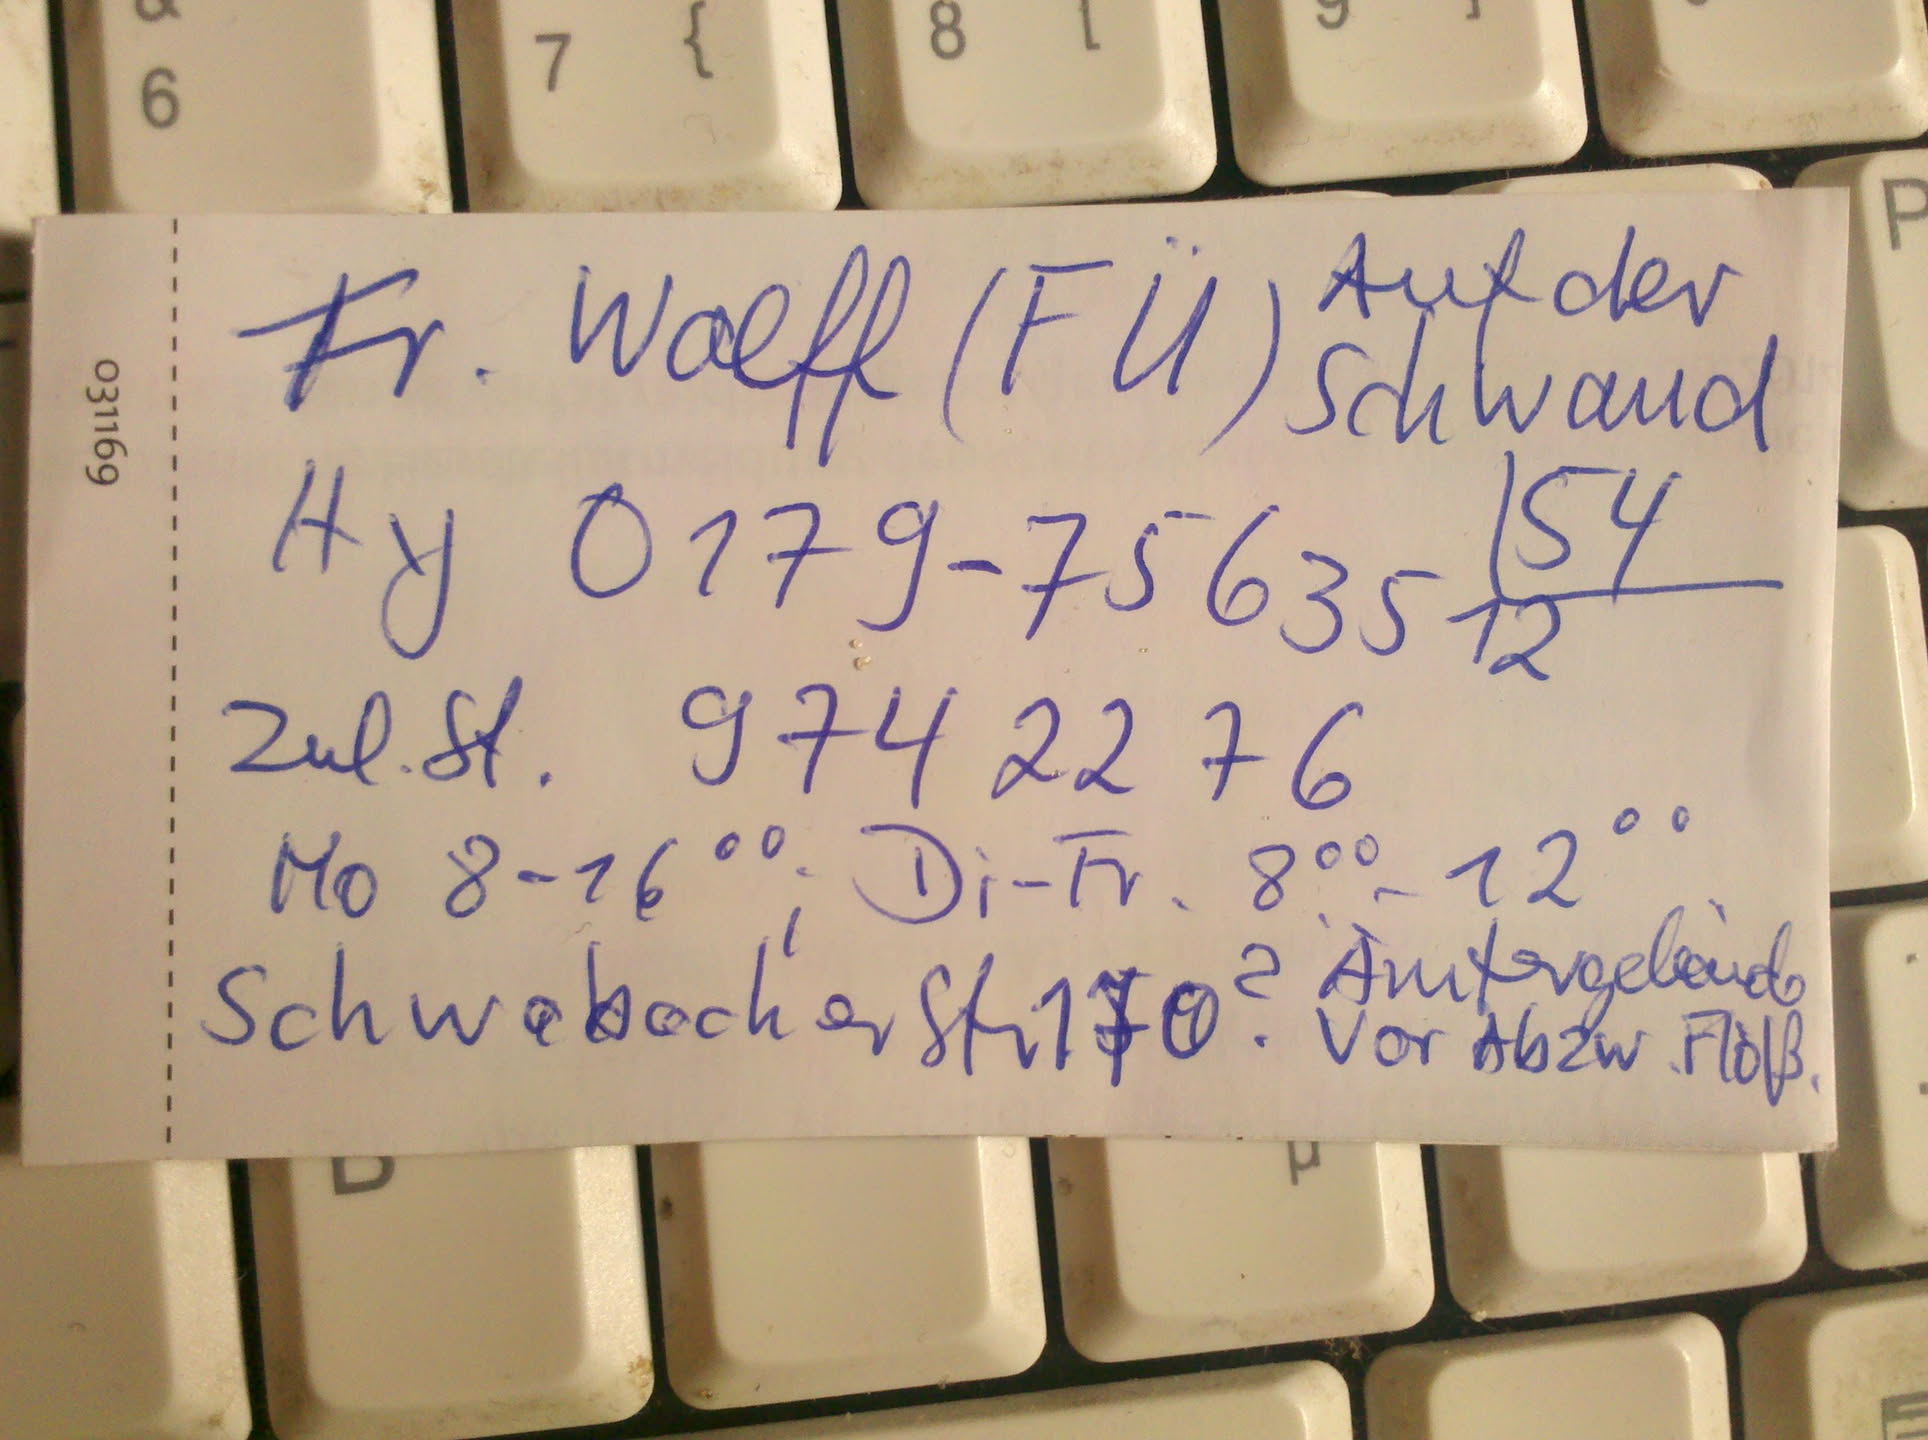 6
7 {
8 [
9 ]
P
031169
Fr. Wolff (FÜ) Auf der
Schwand
154
Hy 0179-7563512
Zul.St. 974 22 76
Mo 8-16°°; Di-Fr. 8°°-12°°
Schwabacher Str 170? Ämtergebäude
Vor Abzw. Flöß.
B
µ